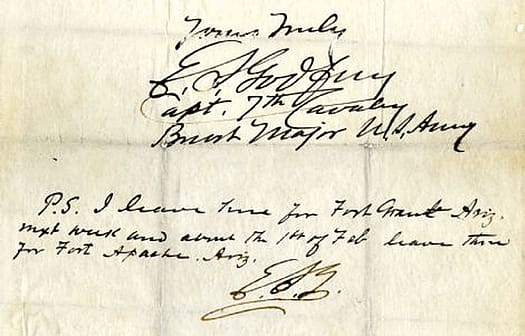 Yours Truly
E. S. Godfrey
Capt. 7th Cavalry
Brevt Major U.S. Army
P.S. I leave here for Fort Grant Ariz.
next week and about the 1st of Feb leave there
for Fort Apache. Ariz.
E.S.G.